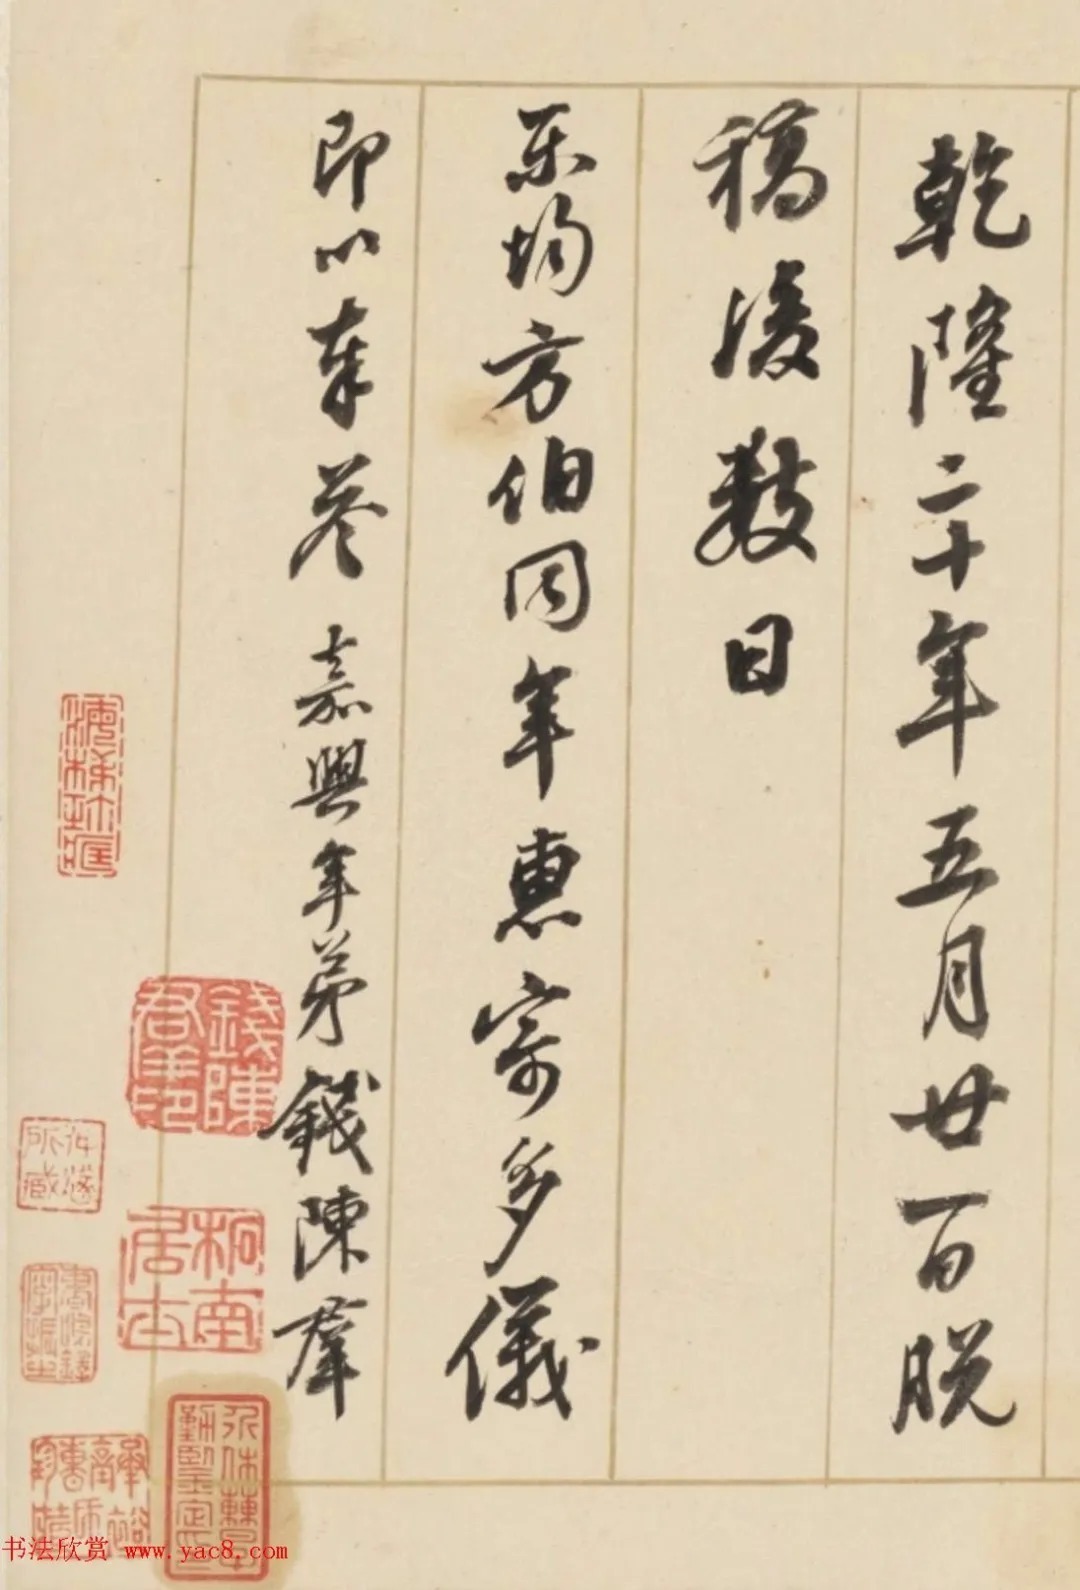 乾隆二十年五月廿一日脱
稿後數日
東均方伯同年惠寄多儀
即以奉答 嘉興年弟錢陳群
錢陳群印
柘南居士
所藏
鑑定
书法欣赏 www.yac8.com